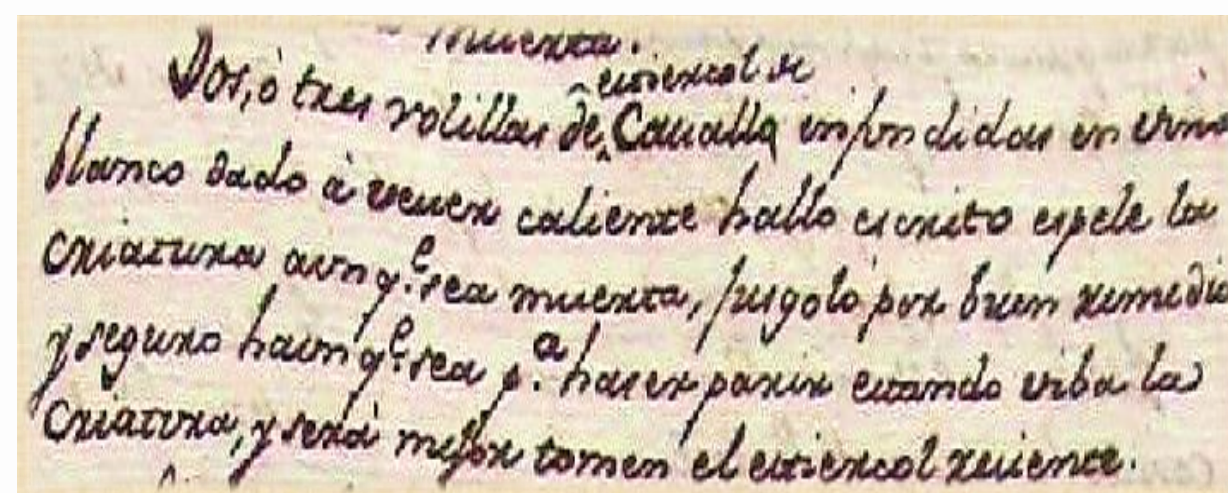 muerta.
estiercol de
Dos, ò tres volillas de Cauallo infundidas en vino
blanco dado à veuer caliente hallo escrito espele la
criatura aunq.e sea muerta, jusgolo por buen remedio
y seguro haunq.e sea p.a haser parir estando viba la
criatura, y serà mejor tomen el estiercol reciente.